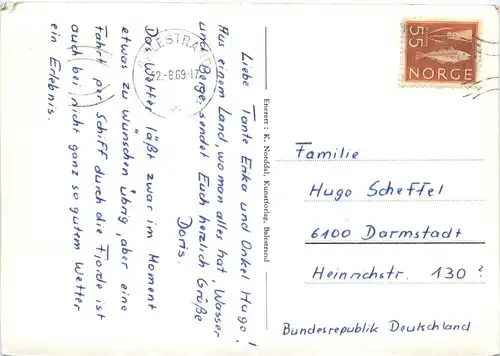 Liebe Tante Erika und Onkel Hugo!
Aus einem Land, wo man alles hat, Wasser
und Berge, sendet Euch herzlich Grüße
Doris.
Das Wetter läßt zwar im Moment
etwas zu wünschen übrig, aber eine
Fahrt per Schiff durch die Fjorde ist
auch bei nicht ganz so gutem Wetter
ein Erlebnis.
Enerett: K. Norddal, Kunstforlag, Balestrand
LESTRA
2.-8.69.-17
55
NORGE
Familie
Hugo Scheffel
6100 Darmstadt
Heinrichstr. 130
Bundesrepublik Deutschland